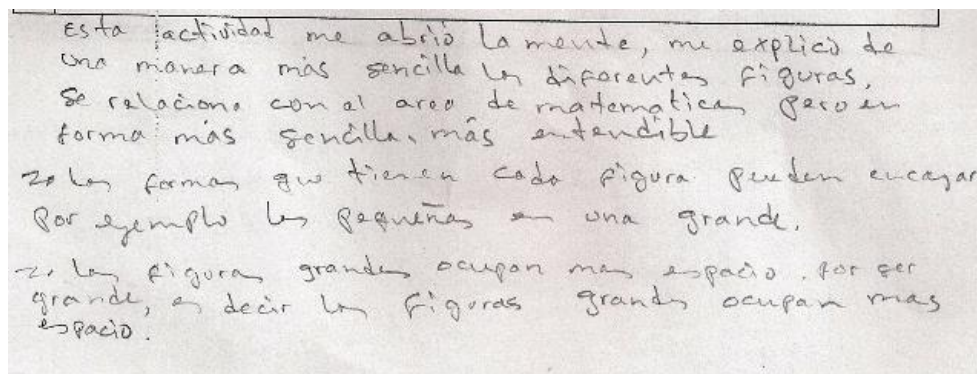 Esta actividad me abrió la mente, me explicó de
una manera más sencilla las diferentes figuras,
Se relaciona con el area de matematicas pero en
forma más sencilla, más entendible
2. las formas que tienen cada figura pueden encajar
Por ejemplo las pequeñas en una grande.
2. las figuras grandes ocupan mas espacio. por ser
grande, es decir las figuras grandes ocupan mas
espacio.